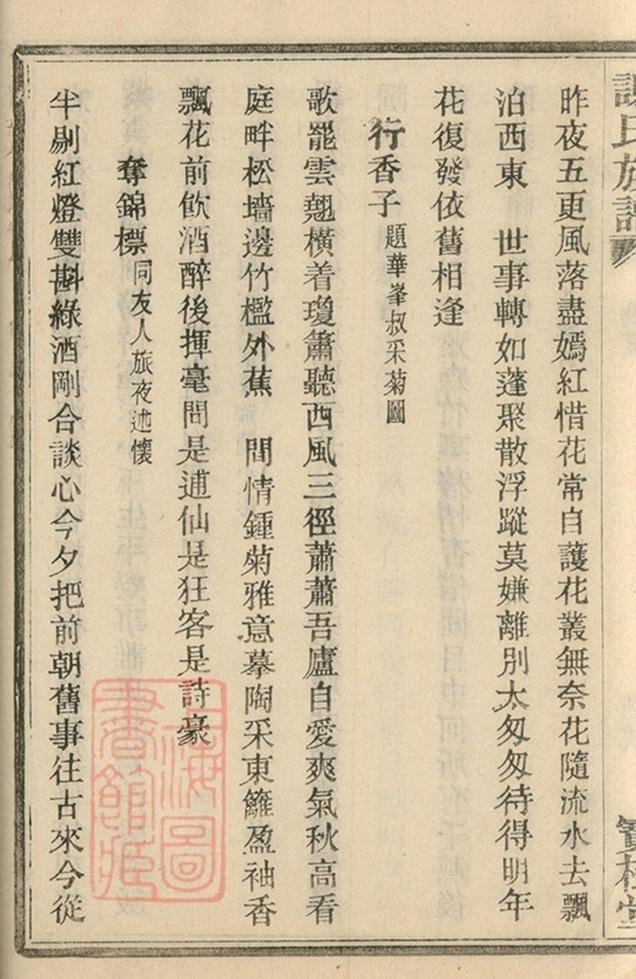 謝氏族譜
寶樹堂
昨夜五更風落盡嫣紅惜花常自護花叢無奈花隨流水去飄
泊西東　世事轉如蓬聚散浮蹤莫嫌離別太匆匆待得明年
花復發依舊相逢
行香子 題華峯叔采菊圖
歌罷雲翹橫着瓊簫聽西風三徑蕭蕭吾廬自愛爽氣秋高看
庭畔松墻邊竹檻外蕉　間情鍾菊雅意摹陶采東籬盈袖香
飄花前飲酒醉後揮毫問是逋仙是狂客是詩豪
奪錦標 同友人旅夜述懷
半剔紅燈雙斟綠酒剛合談心今夕把前朝舊事往古來今從
上海圖
書館藏